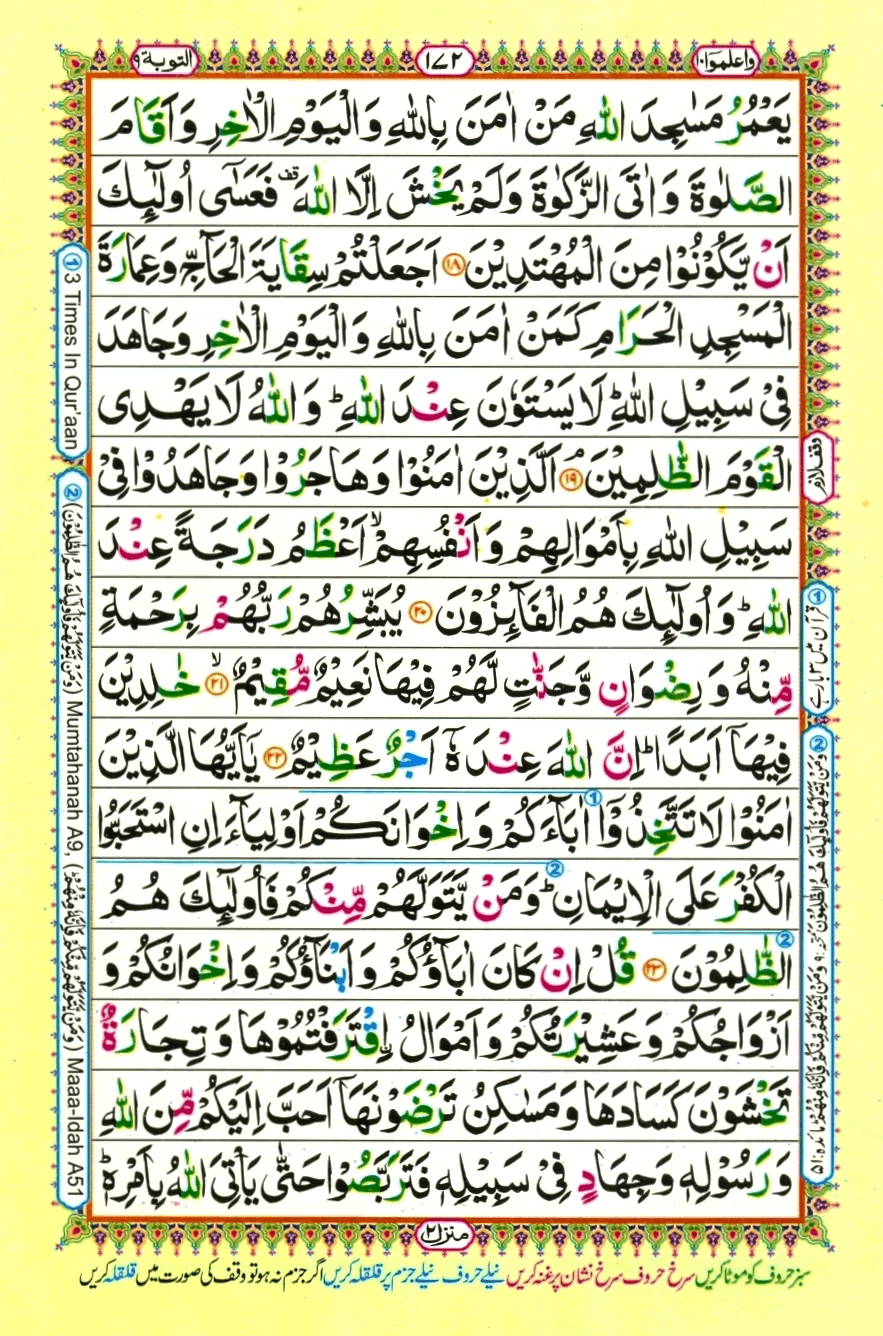 واعلموا۱۰
۱۷۲
التوبة۹
يَعْمُرُ مَسٰجِدَ اللّٰهِ مَنْ اٰمَنَ بِاللّٰهِ وَالْيَوْمِ الْاٰخِرِ وَاَقَامَ
الصَّلٰوةَ وَاٰتَى الزَّكٰوةَ وَلَمْ يَخْشَ اِلَّا اللّٰهَ قف فَعَسٰٓى اُولٰٓئِكَ
اَنْ يَّكُوْنُوْا مِنَ الْمُهْتَدِيْنَ ۱۸ اَجَعَلْتُمْ سِقَايَةَ الْحَآجِّ وَعِمَارَةَ
الْمَسْجِدِ الْحَرَامِ كَمَنْ اٰمَنَ بِاللّٰهِ وَالْيَوْمِ الْاٰخِرِ وَجَاهَدَ
فِيْ سَبِيْلِ اللّٰهِ ؕ لَا يَسْتَوٗنَ عِنْدَ اللّٰهِ ؕ وَاللّٰهُ لَا يَهْدِى
الْقَوْمَ الظّٰلِمِيْنَ ۘ ۱۹ اَلَّذِيْنَ اٰمَنُوْا وَهَاجَرُوْا وَجَاهَدُوْا فِيْ
سَبِيْلِ اللّٰهِ بِاَمْوَالِهِمْ وَاَنْفُسِهِمْ ۙ اَعْظَمُ دَرَجَةً عِنْدَ
اللّٰهِ ؕ وَاُولٰٓئِكَ هُمُ الْفَآئِزُوْنَ ۲۰ يُبَشِّرُهُمْ رَبُّهُمْ بِرَحْمَةٍ
مِّنْهُ وَرِضْوَانٍ وَّجَنّٰتٍ لَّهُمْ فِيْهَا نَعِيْمٌ مُّقِيْمٌ ۙ ۲۱ خٰلِدِيْنَ
فِيْهَآ اَبَدًا ؕ اِنَّ اللّٰهَ عِنْدَهٗٓ اَجْرٌ عَظِيْمٌ ۲۲ يٰٓاَيُّهَا الَّذِيْنَ
اٰمَنُوْا لَا تَتَّخِذُوْٓا اٰبَآءَكُمْ وَاِخْوَانَكُمْ اَوْلِيَآءَ اِنِ اسْتَحَبُّوا
الْكُفْرَ عَلَى الْاِيْمَانِ ؕ وَمَنْ يَّتَوَلَّهُمْ مِّنْكُمْ فَاُولٰٓئِكَ هُمُ
الظّٰلِمُوْنَ ۲۳ قُلْ اِنْ كَانَ اٰبَآؤُكُمْ وَاَبْنَآؤُكُمْ وَاِخْوَانُكُمْ وَ
اَزْوَاجُكُمْ وَعَشِيْرَتُكُمْ وَاَمْوَالُ ۨاقْتَرَفْتُمُوْهَا وَتِجَارَةٌ
تَخْشَوْنَ كَسَادَهَا وَمَسٰكِنُ تَرْضَوْنَهَآ اَحَبَّ اِلَيْكُمْ مِّنَ اللّٰهِ
وَرَسُوْلِهٖ وَجِهَادٍ فِيْ سَبِيْلِهٖ فَتَرَبَّصُوْا حَتّٰى يَاْتِيَ اللّٰهُ بِاَمْرِهٖ ؕ
وقف لازم
① قرآن میں ۳ بار ہے
② وَمَنْ يَّتَوَلَّهُمْ فَاُولٰٓئِكَ هُمُ الظّٰلِمُوْنَ ممتحنہ: ۹، وَمَنْ يَّتَوَلَّهُمْ مِّنْكُمْ فَاِنَّهٗ مِنْهُمْ مائدہ: ۵۱
① 3 Times In Qur'aan
② (وَمَنْ يَّتَوَلَّهُمْ فَاُولٰٓئِكَ هُمُ الظّٰلِمُوْنَ) Mumtahanah A9, (وَمَنْ يَّتَوَلَّهُمْ مِّنْكُمْ فَاِنَّهٗ مِنْهُمْ) Maaa-Idah A51
منزل ۲
سبز حروف کو موٹا کریں سرخ حروف سرخ نشان پر غنہ کریں نیلے حروف نیلے جزم پر قلقلہ کریں اگر جزم نہ ہو تو وقف کی صورت میں قلقلہ کریں